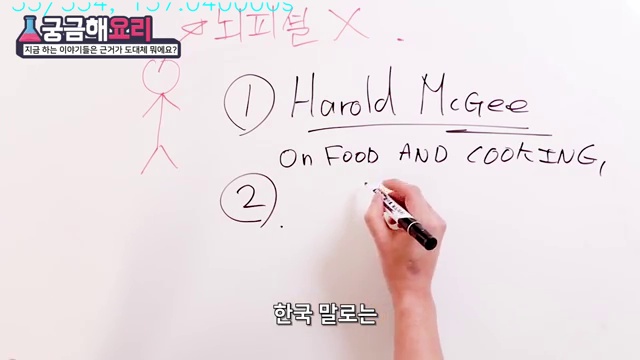 궁금해요리
지금 하는 이야기들은 근거가 도대체 뭐에요?
뇌피셜 X.
① Harold McGee
On FOOD AND COOKING,
②.
한국 말로는